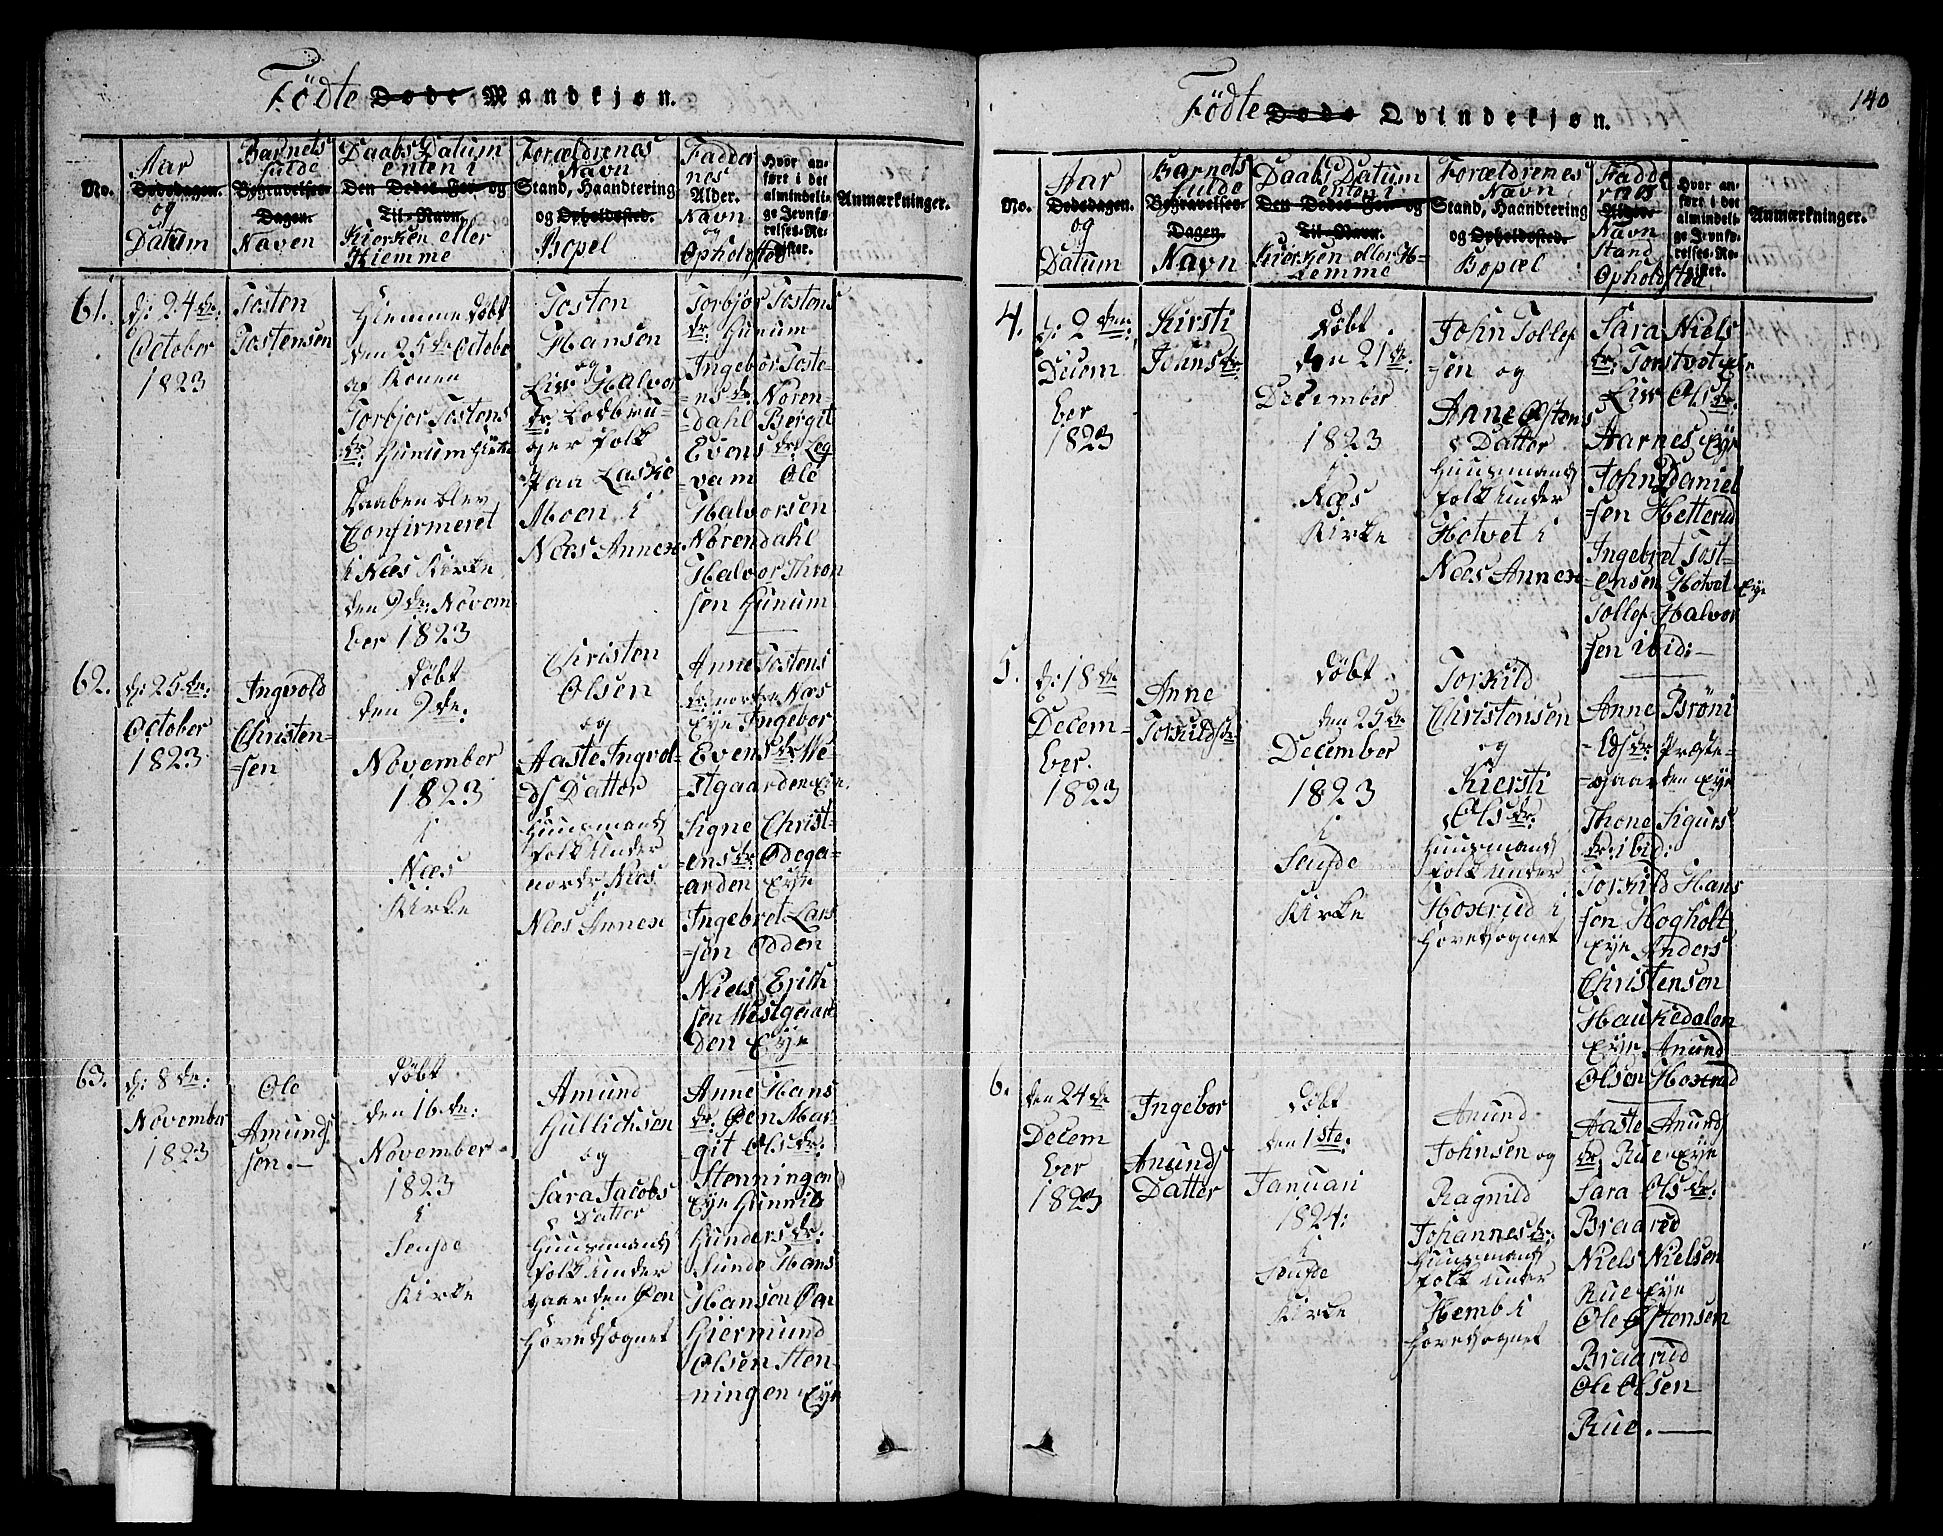 Födte Døde Mandkjøn.
No.
Aar
Dødsdagen.
og
Datum
Barnets
fulde
Begravelses-
Dagen.
Naven
Daabs Datum
enten i
Den Dødes For- og
Til-Navn.
Kierken eller
Hiemme
Forældrenes
Navn
Stand, Haandtering
og Opholdssted.
Bopel
Fadder
nes
Alder.
Navn
og
Opholdsted
Hvor an-
ført i det
almindeli-
ge Jevnfø-
relses-Re-
gister.
Anmærkninger.
61.
d: 24de:
October
1823
Tosten
Tostensen
Hiemme døbt
den 25de Octobe
af Konen
Torbjor Tostens
dr. Hunum
Daaben blev
Confirmeret
i Næs Kirke
den 9de: Novem
ber 1823
Tosten
Hansen
og
Liv Halvor
dr. Lodbru-
ger folk
paa Laske
Moen i
Næs Annex
Torbjør Tostens
dr. Hunum
Ingebor Toste-
ns dr. Noren-
dahl Bergit
Evens dr. Leg
vam Ole
Halvorsen
Nørendahl
Halvor Thron
sen Hunum
62.
d: 25de:
October
1823
Ingvold
Christen-
sen
døbt
den 9de:
November
1823
i
Næs
Kirke
Christen
Olsen
og
Aaste Ingvol-
ds Datter
Huusmands
folk under
nordre Næs
i
Næs Annex
Anne Tostens
dr. nordre Næs
Eye Ingebor
Evens dr. We-
stgaarden Eye
Signe Christ-
ens dr. Ødega-
arden Eye
Ingebret Lars
sen Odden
Niels Erich
sen Westgaar
den Eye
63.
d: 8de:
November
1823
Ole
Amunds
sen.-
døbt
den 16de:
November
1823
i
Seufde
Kirke
Amund
Gullichsen
og
Sara Jacobs
Datter
Huusmands
folk under
gaarden Øen
i
Hovedsognet
Anne Hans
dr. Øen Mar
git Ols dr.
Stenningen
Eye Gunnild
Gunders dr.
Sunde Hans
Hansen Øen
Giermund
Olsen Sten-
ningen Eye
Födte Døde Qvindekjøn.
140
No.
Aar
Dødsdagen.
og
Datum
Barnets
fulde
Begravelses-
Dagen.
Navn
Daabs Datum
enten i
Den Dødes For- og
Til-Navn.
Kierken eller H-
iemme
Forældrenes
Navn
Stand, Haandtering
og Opholdssted.
Bopæl
Fadde
rnes
Alder.
Navn
Stand
Opholdsted
Hvor an-
ført i det
almindeli-
ge Jevnfø-
relses-Re-
gister.
Anmærkninger.
4.
d: 2den:
Decem
ber
1823
Kirsti
Johns dr.
døbt
den 21de:
December
1823
i
Næs
Kirke
John Tollef
sen og
Anne Østens
Datter
Huusmands
folk under
Hotvet i
Næs Annex
Sara Niels
dr. Torstvot Eye
Liv Ols dr.
Aarnes Eye
John Daniel
sen Hetterud
Ingebret Tost-
ensen Hotvet Eye
Tollef Halvor
sen ibid:-
5.
d: 18de
Decem-
ber.
1823
Anne
Torkilds dr.
døbt
den 25de
December
1823
i
Seufde
Kirke
Torkild
Christensen
og
Kiersti
Ols dr.
Huusmands
folk under
Hoxrud i
Hovedsognet
Anne Brøni
lds dr. Præste-
gaarden Eye
Thone Sigurs
dr. ibid:
Torkild Hans
sen Hogholt
Eye Anders
Christensen
Haukedalen
Eye Anund
Olsen Hoxrud
6.
den 24de
Decem
ber
1823
Ingebor
Anunds
Datter
døbt
den 1ste.
Januari
1824:
i
Seufde
Kirke
Anund
Johnsen og
Ragnild
Johannes dr.
Huusmands
folk under
Hemb i
Hovedsognet
Aaste Anunds
dr. Rue Eye
Sara Ols dr.
Braarud
Niels Nielsen
Rue Eye
Ole Østensen
Braarud
Ole Olsen
Rue.-